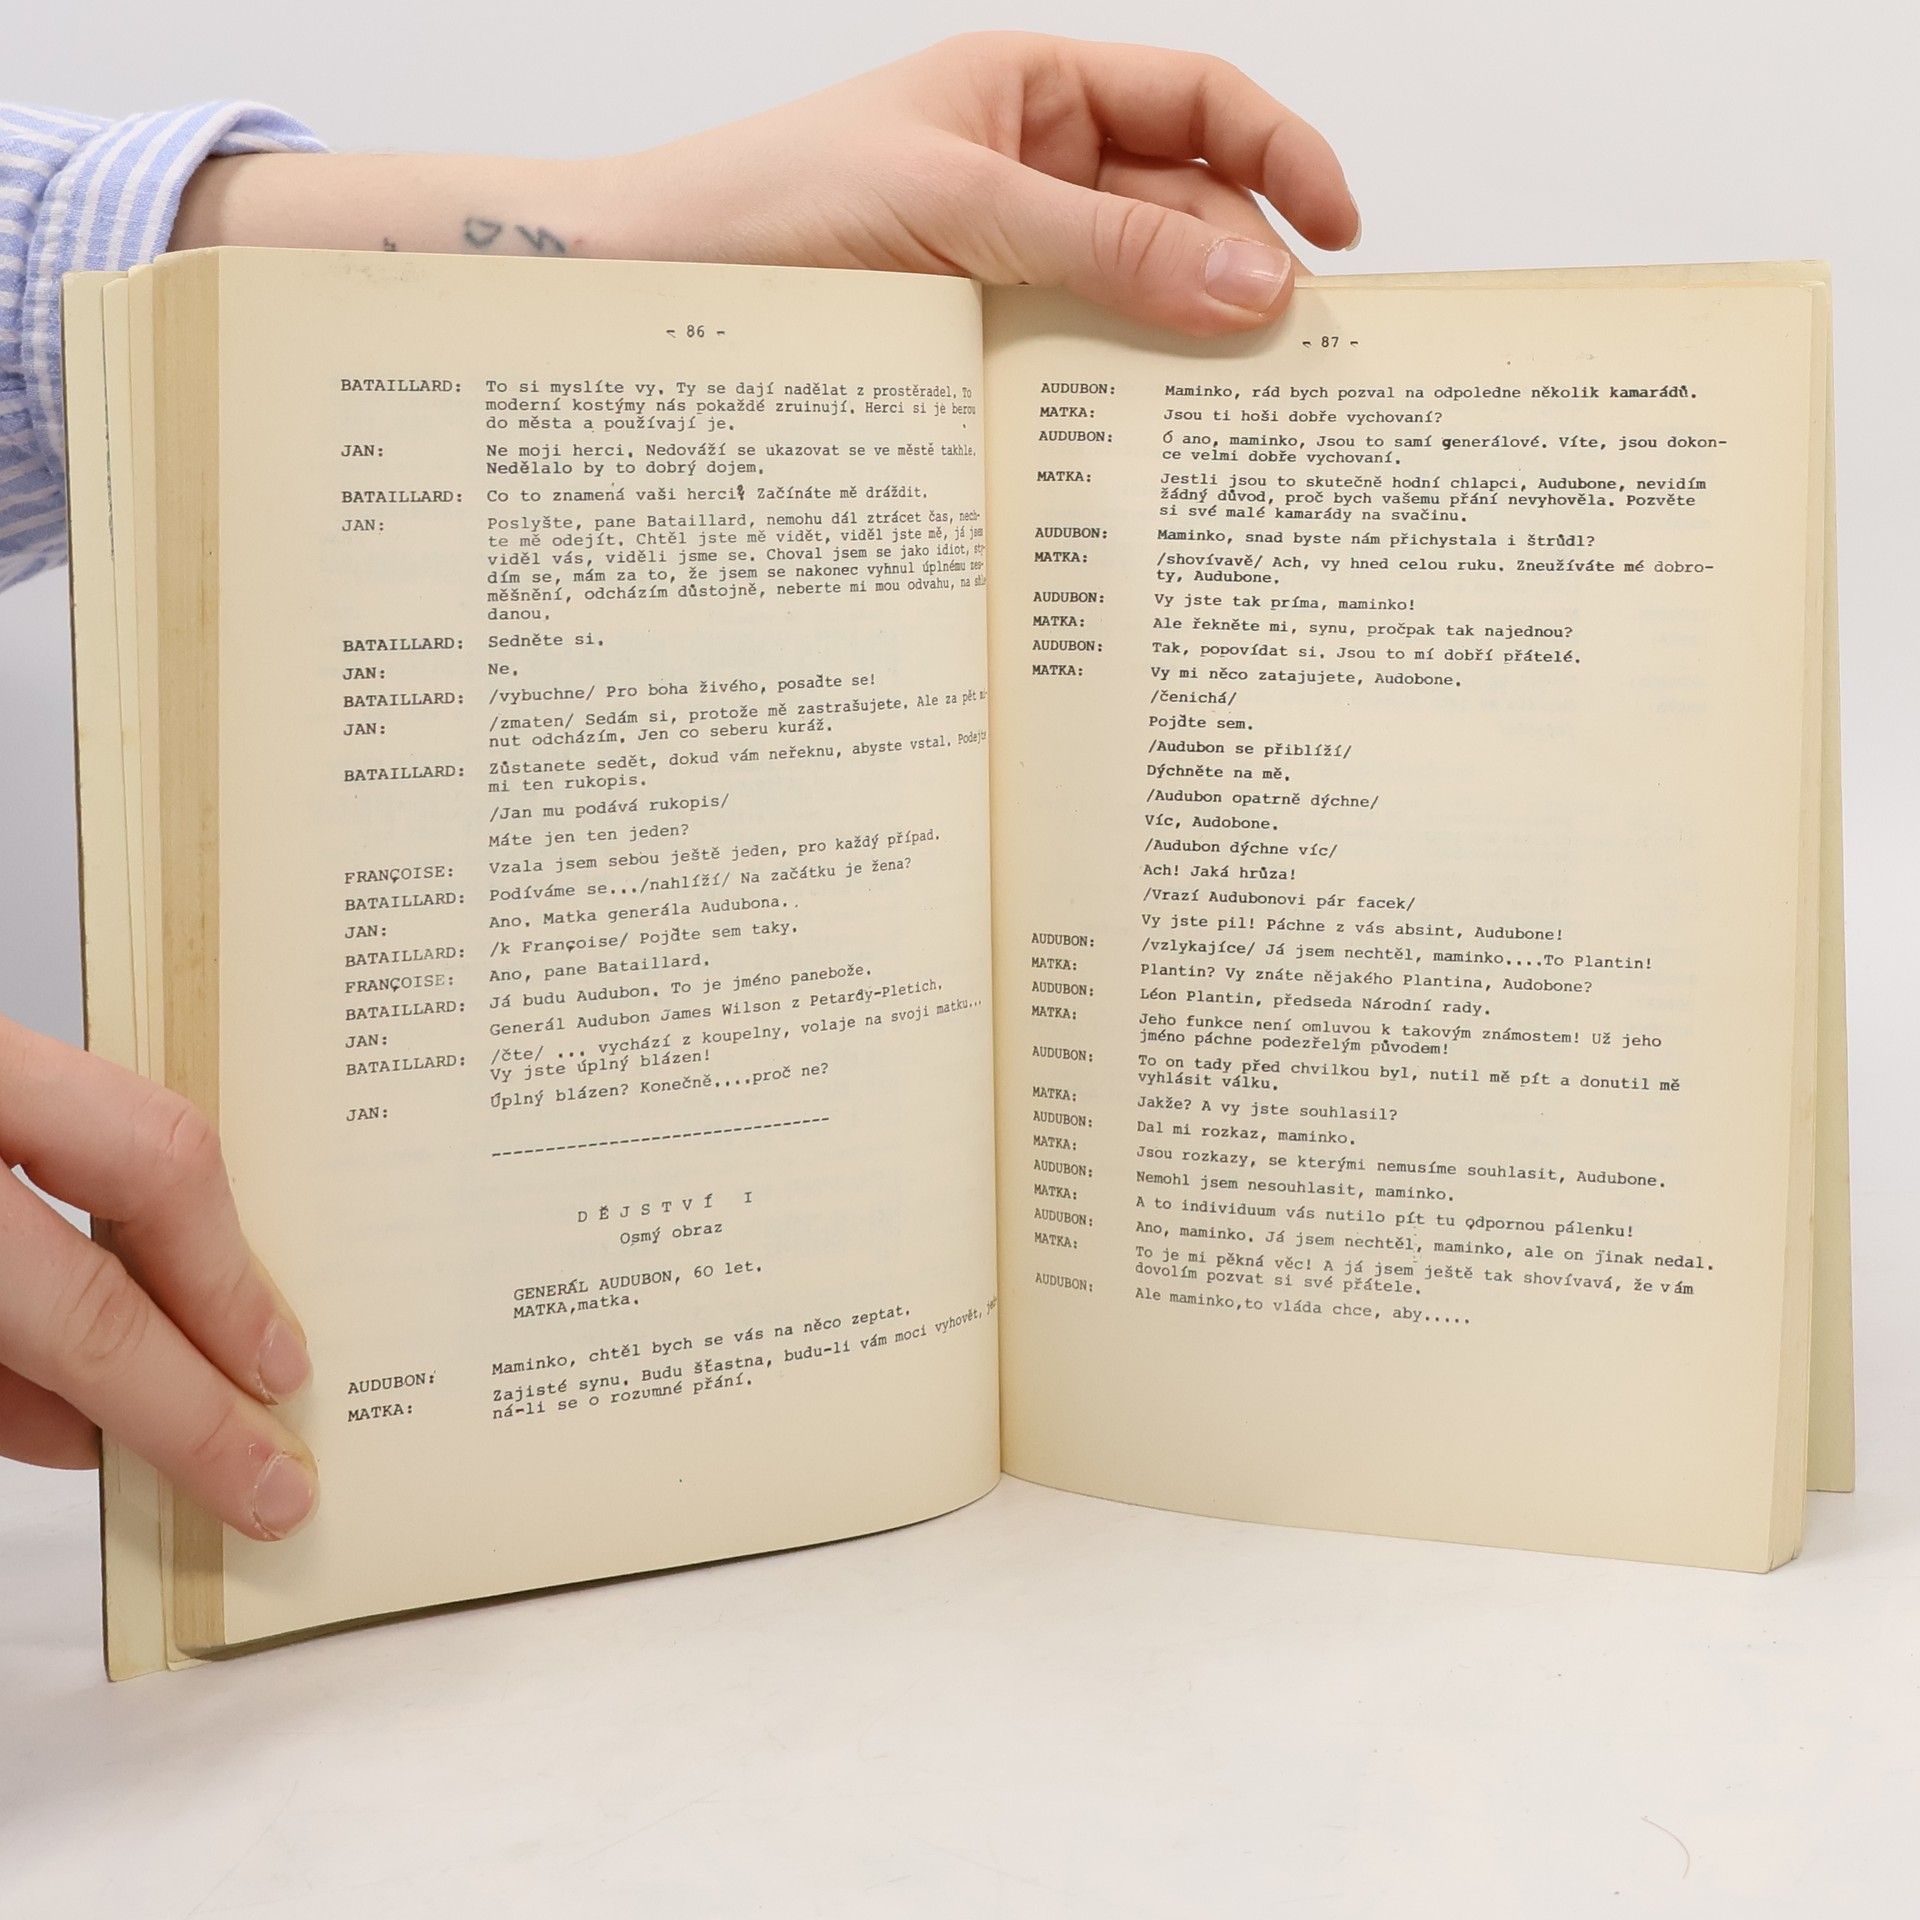 - 86 -
BATAILLARD: To si myslíte vy. Ty se dají nadělat z prostěradel. To
moderní kostýmy nás pokaždé zruinují. Herci si je berou
do města a používají je.
JAN: Ne moji herci. Nedováží se ukazovat se ve městě takhle.
Nedělalo by to dobrý dojem.
BATAILLARD: Co to znamená vaši herci? Začínáte mě dráždit.
JAN: Poslyšte, pane Bataillard, nemohu dál ztrácet čas, nech-
te mě odejít. Chtěl jste mě vidět, viděl jste mě, já jsem
viděl vás, viděli jsme se. Choval jsem se jako idiot, sty-
dím se, mám za to, že jsem se nakonec vyhnul úplnému zes-
měšnění, odcházím důstojně, neberte mi mou odvahu, na
danou.
BATAILLARD: Sedněte si.
JAN: Ne.
BATAILLARD: /vybuchne/ Pro boha živého, posaďte se!
JAN: /zmaten/ Sedám si, protože mě zastrašujete. Ale za pět mi-
nut odcházím. Jen co seberu kuráž.
BATAILLARD: Zůstanete sedět, dokud vám neřeknu, abyste vstal. Podejte
mi ten rukopis.
/Jan mu podává rukopis/
Máte jen ten jeden?
FRANÇOISE: Vzala jsem sebou ještě jeden, pro každý případ.
BATAILLARD: Podíváme se.../nahlíží/ Na začátku je žena?
JAN: Ano. Matka generála Audubona..
BATAILLARD: /k Françoise/ Pojďte sem taky.
FRANÇOISE: Ano, pane Bataillard.
BATAILLARD: Já budu Audubon. To je jméno panebože.
JAN: Generál Audubon James Wilson z Petardy-Pletich.
BATAILLARD: /čte/ ... vychází z koupelny, volaje na svoji matku...
Vy jste úplný blázen!
JAN: Úplný blázen? Konečně....proč ne?
--------------------------------
DĚJSTVÍ I
Osmý obraz
GENERÁL AUDUBON, 60 let.
MATKA,matka.
AUDUBON: Maminko, chtěl bych se vás na něco zeptat.
MATKA: Zajisté synu. Budu šťastna, budu-li vám moci vyhovět, jed-
ná-li se o rozumné přání.
- 87 -
AUDUBON: Maminko, rád bych pozval na odpoledne několik kamarádů.
MATKA: Jsou ti hoši dobře vychovaní?
AUDUBON: Ó ano, maminko, Jsou to samí generálové. Víte, jsou dokon-
ce velmi dobře vychovaní.
MATKA: Jestli jsou to skutečně hodní chlapci, Audubone, nevidím
žádný důvod, proč bych vašemu přání nevyhověla. Pozvěte
si své malé kamarády na svačinu.
AUDUBON: Maminko, snad byste nám přichystala i štrůdl?
MATKA: /shovívavě/ Ach, vy hned celou ruku. Zneužíváte mé dobro-
ty, Audubone.
AUDUBON: Vy jste tak príma, maminko!
MATKA: Ale řekněte mi, synu, pročpak tak najednou?
AUDUBON: Tak, popovídat si. Jsou to mí dobří přátelé.
MATKA: Vy mi něco zatajujete, Audobone.
/čenichá/
Pojďte sem.
/Audubon se přiblíží/
Dýchněte na mě.
/Audubon opatrně dýchne/
Víc, Audobone.
/Audubon dýchne víc/
Ach! Jaká hrůza!
/Vrazí Audubonovi pár facek/
Vy jste pil! Páchne z vás absint, Audubone!
AUDUBON: /vzlykajíce/ Já jsem nechtěl, maminko....To Plantin!
MATKA: Plantin? Vy znáte nějakého Plantina, Audobone?
AUDUBON: Léon Plantin, předseda Národní rady.
MATKA: Jeho funkce není omluvou k takovým známostem! Už jeho
jméno páchne podezřelým původem!
AUDUBON: To on tady před chvilkou byl, nutil mě pít a donutil mě
vyhlásit válku.
MATKA: Jakže? A vy jste souhlasil?
AUDUBON: Dal mi rozkaz, maminko.
MATKA: Jsou rozkazy, se kterými nemusíme souhlasit, Audubone.
AUDUBON: Nemohl jsem nesouhlasit, maminko.
MATKA: A to individuum vás nutilo pít tu odpornou pálenku!
AUDUBON: Ano, maminko. Já jsem nechtěl, maminko, ale on jinak nedal.
MATKA: To je mi pěkná věc! A já jsem ještě tak shovívavá, že vám
dovolím pozvat si své přátele.
AUDUBON: Ale maminko,to vláda chce, aby.....